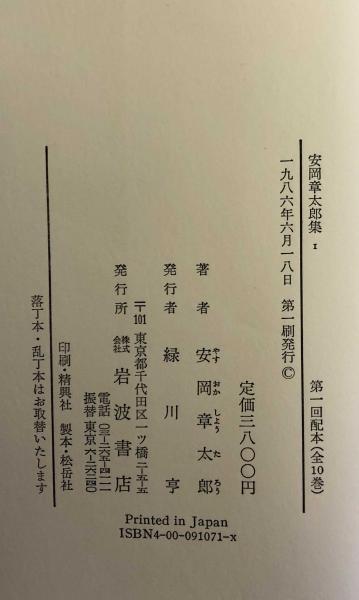 安岡章太郎集 1
第一回配本(全10巻)
一九八六年六月一八日 第一刷発行©
定価三八〇〇円
著者 安岡章太郎
やす おか しよう た ろう
発行者 緑川亨
〒101 東京都千代田区一ツ橋二-五-五
発行所 株式会社 岩波書店
電話 〇三-二六五-四一一一
振替 東京 六-二六二四〇
印刷・精興社 製本・松岳社
落丁本・乱丁本はお取替いたします
Printed in Japan
ISBN4-00-091071-x